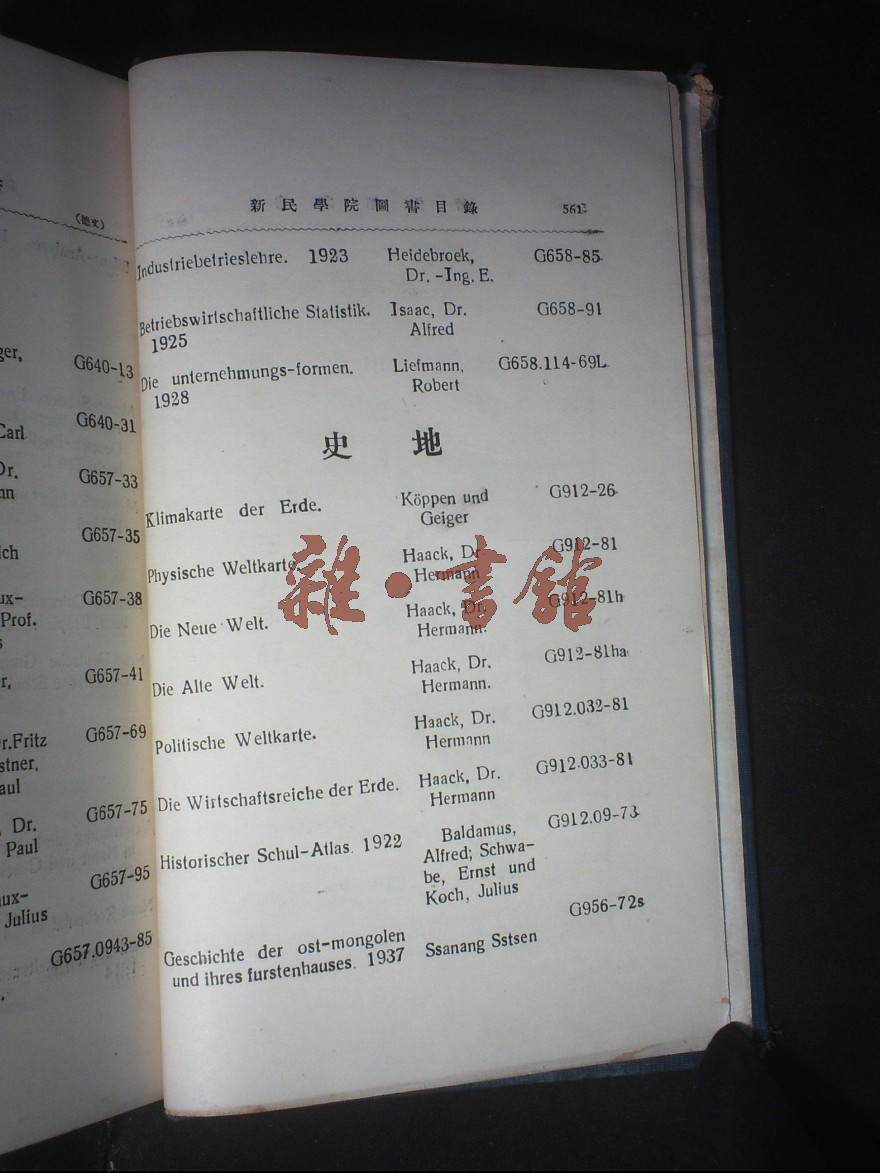 (德文)
G640-13
G640-31
Carl
G657-33
G657-35
G657-38
Prof.
G657-41
Dr.Fritz
G657-69
G657-75
Dr.
Paul
G657-95
Julius
G657.0943-85
新民學院圖書目錄 561
Industriebetrieslehre. 1923 Heidebroek, G658-85
Dr. -Ing. E.
Betriebswirtschaftliche Statistik. Isaac, Dr. G658-91
1925 Alfred
Die unternehmungs-formen. Liefmann, G658.114-69L
1928 Robert
史地
Klimakarte der Erde. Köppen und G912-26
Geiger
Physische Weltkarte. Haack, Dr G912-81
Hermann
Die Neue Welt. Haack, Dr. G912-81h
Hermann.
Die Alte Welt. Haack, Dr. G912-81ha
Hermann.
Politische Weltkarte. Haack, Dr. G912.032-81
Hermann
Die Wirtschaftsreiche der Erde. Haack, Dr. G912.033-81
Hermann
Historischer Schul-Atlas. 1922 Baldamus, G912.09-73
Alfred; Schwa-
be, Ernst und
Koch, Julius
Geschichte der ost-mongolen Ssanang Sstsen G956-72s
und ihres furstenhauses. 1937
雜·書館